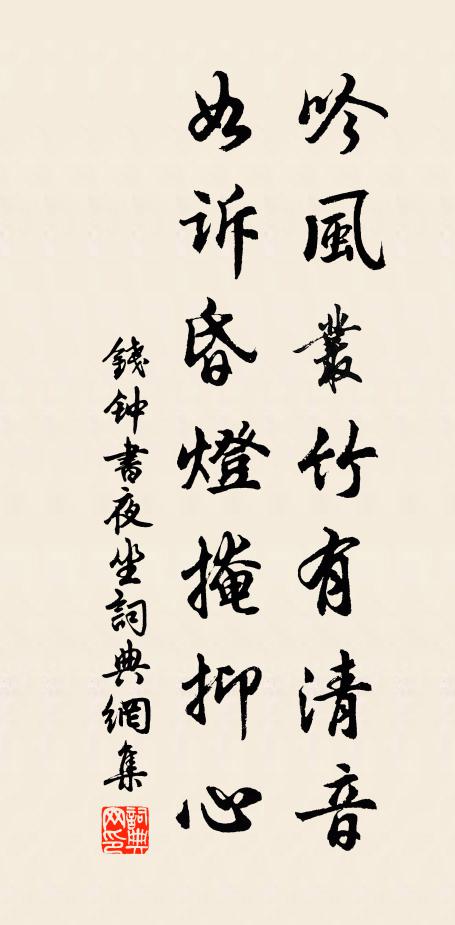 吟風叢竹有清音
如訴昏燈掩抑心
錢钟書夜坐詞典網集
詞典網印